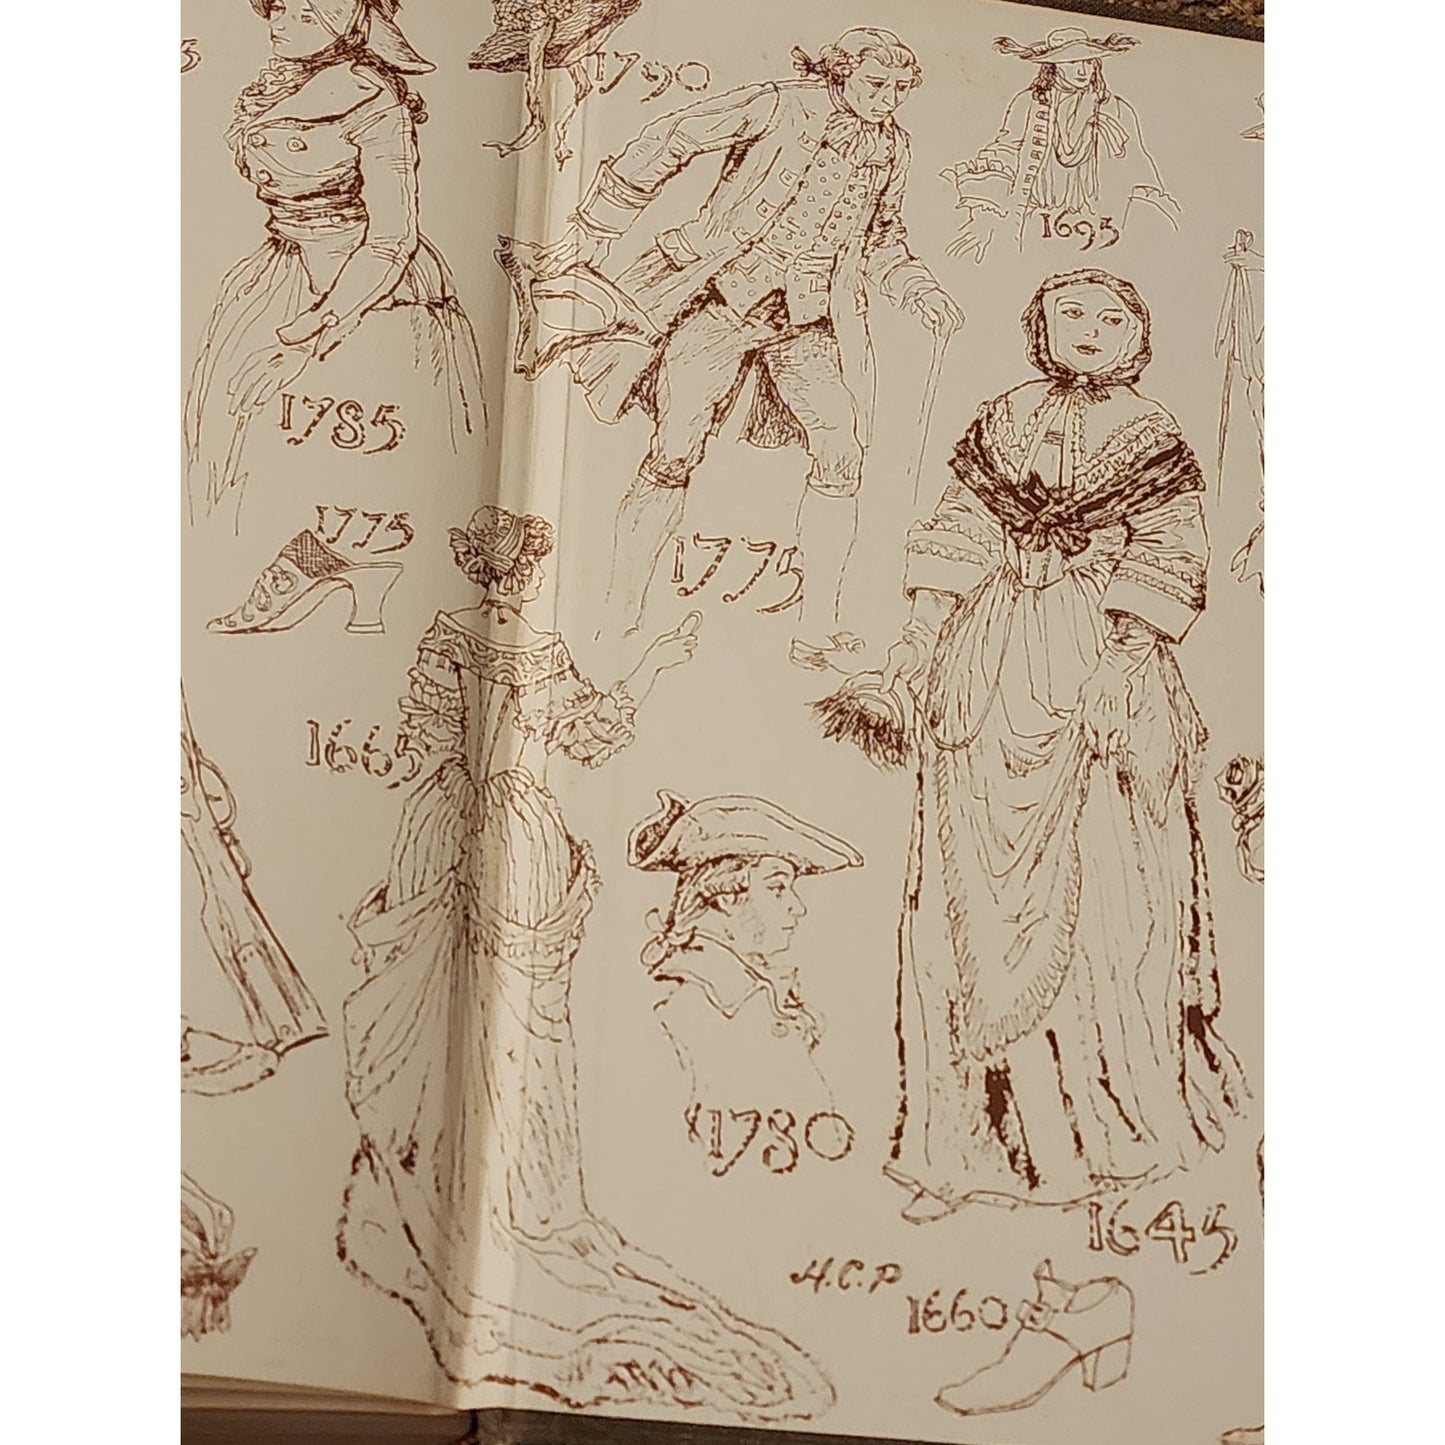 1790
1695
1785
1775
1775
1665
1780
1645
H.C.P
1660